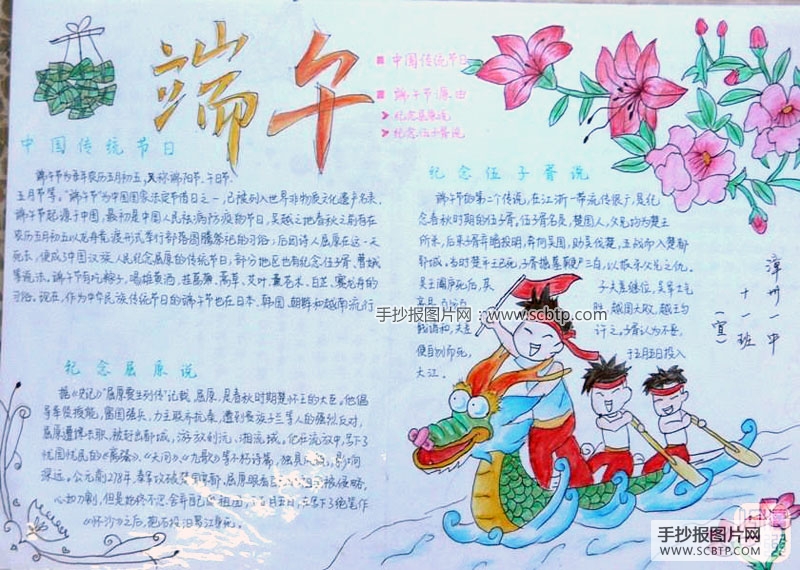 端午
中国传统节日
端午节源由
纪念屈原说
纪念伍子胥说
中国传统节日
端午节为每年农历五月初五,又称端阳节、午日节、
五月节等。“端午节”为中国国家法定节日之一,已被列入世界非物质文化遗产名录,
端午节起源于中国,最初是中国人民祛病防疫的节日,吴越之地春秋之前有在
农历五月初五以龙舟竞渡形式举行部落图腾祭祀的习俗;后因诗人屈原在这一天
死去,便成了中国汉族人民纪念屈原的传统节日;部分地区也有纪念伍子胥、曹娥
等说法。端午节有吃粽子,喝雄黄酒,挂菖蒲、蒿草、艾叶,薰苍术、白芷,赛龙舟的
习俗。现在,作为中华民族传统节日的端午节也在日本、韩国、朝鲜和越南流行
纪念屈原说
据《史记》“屈原贾生列传”记载,屈原,是春秋时期楚怀王的大臣。他倡
导举贤授能,富国强兵,力主联齐抗秦,遭到贵族子兰等人的强烈反对,
屈原遭馋去职,被赶出都城,流放到沅、湘流域。他在流放中,写下了
忧国忧民的《离骚》、《天问》、《九歌》等不朽诗篇,独具风貌,影响
深远。公元前278年,秦军攻破楚国京都。屈原眼看自己的祖国被侵略,
心如刀割,但是始终不忍舍弃自己的祖国,于五月五日,在写下了绝笔作
《怀沙》之后,抱石投汨罗江身死。
纪念伍子胥说
端午节的第二个传说,在江浙一带流传很广,是纪
念春秋时期的伍子胥。伍子胥名员,楚国人,父兄均为楚王
所杀,后来子胥弃暗投明,奔向吴国,助吴伐楚,五战而入楚都
郢城。当时楚平王已死,子胥掘墓鞭尸三百,以报杀父兄之仇。
吴王阖庐死后,其子夫差继位,吴军士气
越国大败,越王勾
践请和,夫差许之。子胥认为不妥,
便自刎而死,于五月五日投入
大江。
漳州一中
十一班
(宣)
手抄报图片网:www.scbtp.com
手抄报图片网:www.scbtp.com
手抄报图片网
WWW.SCBTP.COM